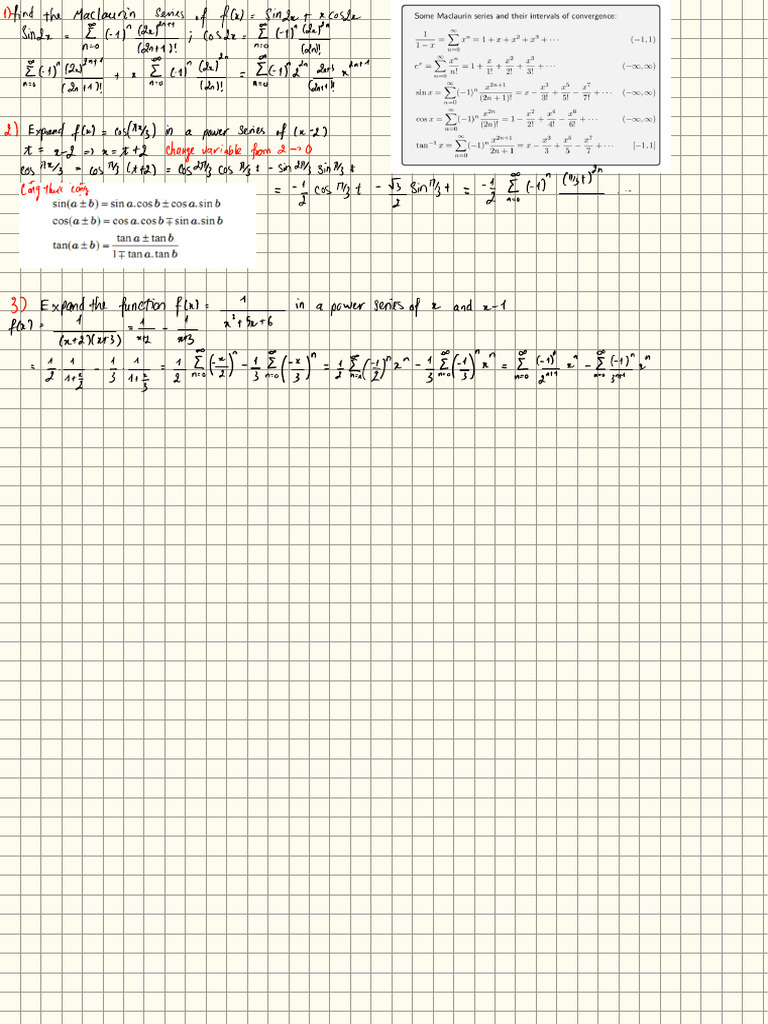 1) find the Maclaurin Series of f(x) = Sin2x + x cos2x
Sin2x = ∑_{n=0}^{∞} (-1)^n (2x)^{2n+1}/(2n+1)! ; cos2x = ∑_{n=0}^{∞} (-1)^n (2x)^{2n}/(2n)!
∑_{n=0}^{∞} (-1)^n (2x)^{2n+1}/(2n+1)! + x ∑_{n=0}^{∞} (-1)^n (2x)^{2n}/(2n)! = ∑_{n=0}^{∞} (-1)^n 2^{2n} (2n+3)/(2n+1)! x^{2n+1}
Some Maclaurin series and their intervals of convergence:
1/(1-x) = ∑_{n=0}^{∞} x^n = 1 + x + x^2 + x^3 + ··· (-1, 1)
e^x = ∑_{n=0}^{∞} x^n/n! = 1 + x/1! + x^2/2! + x^3/3! + ··· (-∞, ∞)
sin x = ∑_{n=0}^{∞} (-1)^n x^{2n+1}/(2n+1)! = x - x^3/3! + x^5/5! - x^7/7! + ··· (-∞, ∞)
cos x = ∑_{n=0}^{∞} (-1)^n x^{2n}/(2n)! = 1 - x^2/2! + x^4/4! - x^6/6! + ··· (-∞, ∞)
tan^{-1} x = ∑_{n=0}^{∞} (-1)^n x^{2n+1}/(2n+1) = x - x^3/3 + x^5/5 - x^7/7 + ··· [-1, 1]
2) Expand f(x) = cos(πx/3) in a power series of (x-2)
t = x-2 => x = t+2 Change variable from 2 → 0
cos πx/3 = cos π/3 (t+2) = cos 2π/3 cos π/3 t - sin 2π/3 sin π/3 t
= -1/2 cos π/3 t - √3/2 Sin π/3 t = -1/2 ∑_{n=0}^{∞} (-1)^n (π/3 t)^{2n} ...
Công thức cộng
sin(a ± b) = sin a.cos b ± cos a.sin b
cos(a ± b) = cos a.cos b ∓ sin a.sin b
tan(a ± b) = (tan a ± tan b)/(1 ∓ tan a.tan b)
3) Expand the function f(x) = 1/(x^2+5x+6) in a power series of x and x-1
f(x) = 1/((x+2)(x+3)) = 1/(x+2) - 1/(x+3)
= 1/2 · 1/(1+x/2) - 1/3 · 1/(1+x/3) = 1/2 ∑_{n=0}^{∞} (-x/2)^n - 1/3 ∑_{n=0}^{∞} (-x/3)^n = 1/2 ∑_{n=0}^{∞} (-1/2)^n x^n - 1/3 ∑_{n=0}^{∞} (-1/3)^n x^n = ∑_{n=0}^{∞} (-1)^n/2^{n+1} x^n - ∑_{n=0}^{∞} (-1)^n/3^{n+1} x^n